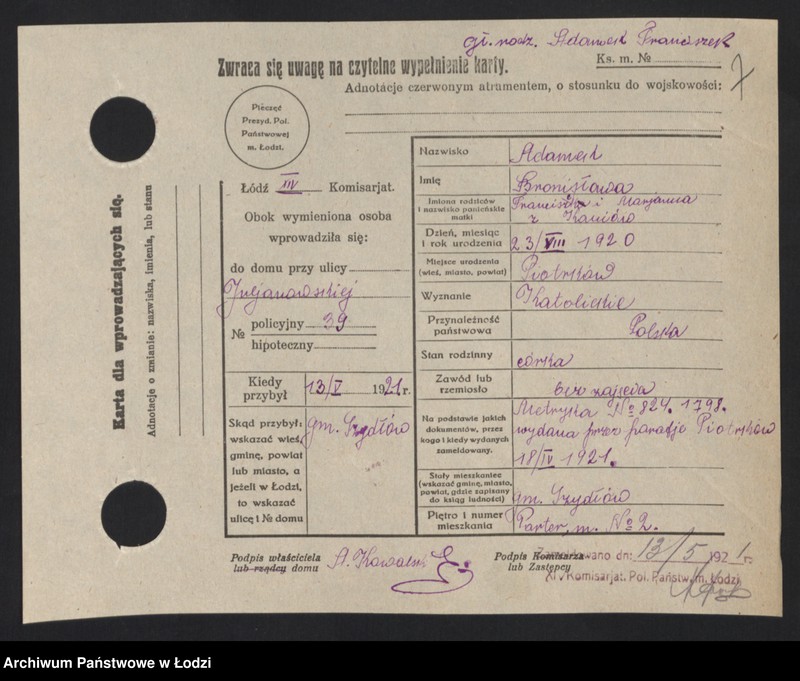 gł. rodz. Adamek Franciszek
Zwraca się uwagę na czytelne wypełnienie karty.
Ks. m. №
7
Adnotacje czerwonym atramentem, o stosunku do wojskowości:
Pieczęć
Prezyd. Pol.
Państwowej
m. Łodzi.
Karta dla wprowadzających się.
Adnotacje o zmianie: nazwiska, imienia, lub stanu
Łódź XIV Komisarjat.
Obok wymieniona osoba
wprowadziła się:
do domu przy ulicy
Juljanowskiej
№ policyjny 39
hipoteczny
Kiedy przybył 13/V 1921 r.
Skąd przybył: wskazać wieś, gminę, powiat lub miasto, a jeżeli w Łodzi, to wskazać ulicę i № domu
gm. Szydłów
Nazwisko Adamek
Imię Bronisława
Imiona rodziców i nazwisko panieńskie matki Franciszka i Marjanna
z Kaniów
Dzień, miesiąc i rok urodzenia 23/VIII 1920
Miejsce urodzenia (wieś, miasto, powiat) Piotrków
Wyznanie Katolickie
Przynależność państwowa Polska
Stan rodzinny córka
Zawód lub rzemiosło bez zajęcia
Na podstawie jakich dokumentów, przez kogo i kiedy wydanych zameldowany.
Metryka № 824. 1798.
wydana przez parafję Piotrków
18/IV 1921.
Stały mieszkaniec (wskazać gminę, miasto, powiat, gdzie zapisany do ksiąg ludności) gm. Szydłów
Piętro i numer mieszkania Parter, m. № 2.
Podpis właściciela
lub rządcy domu
Podpis Komisarza
lub Zastępcy
dn: 13/5 1921 r.
XIV Komisarjat. Pol. Państw. m. Łodzi
Archiwum Państwowe w Łodzi